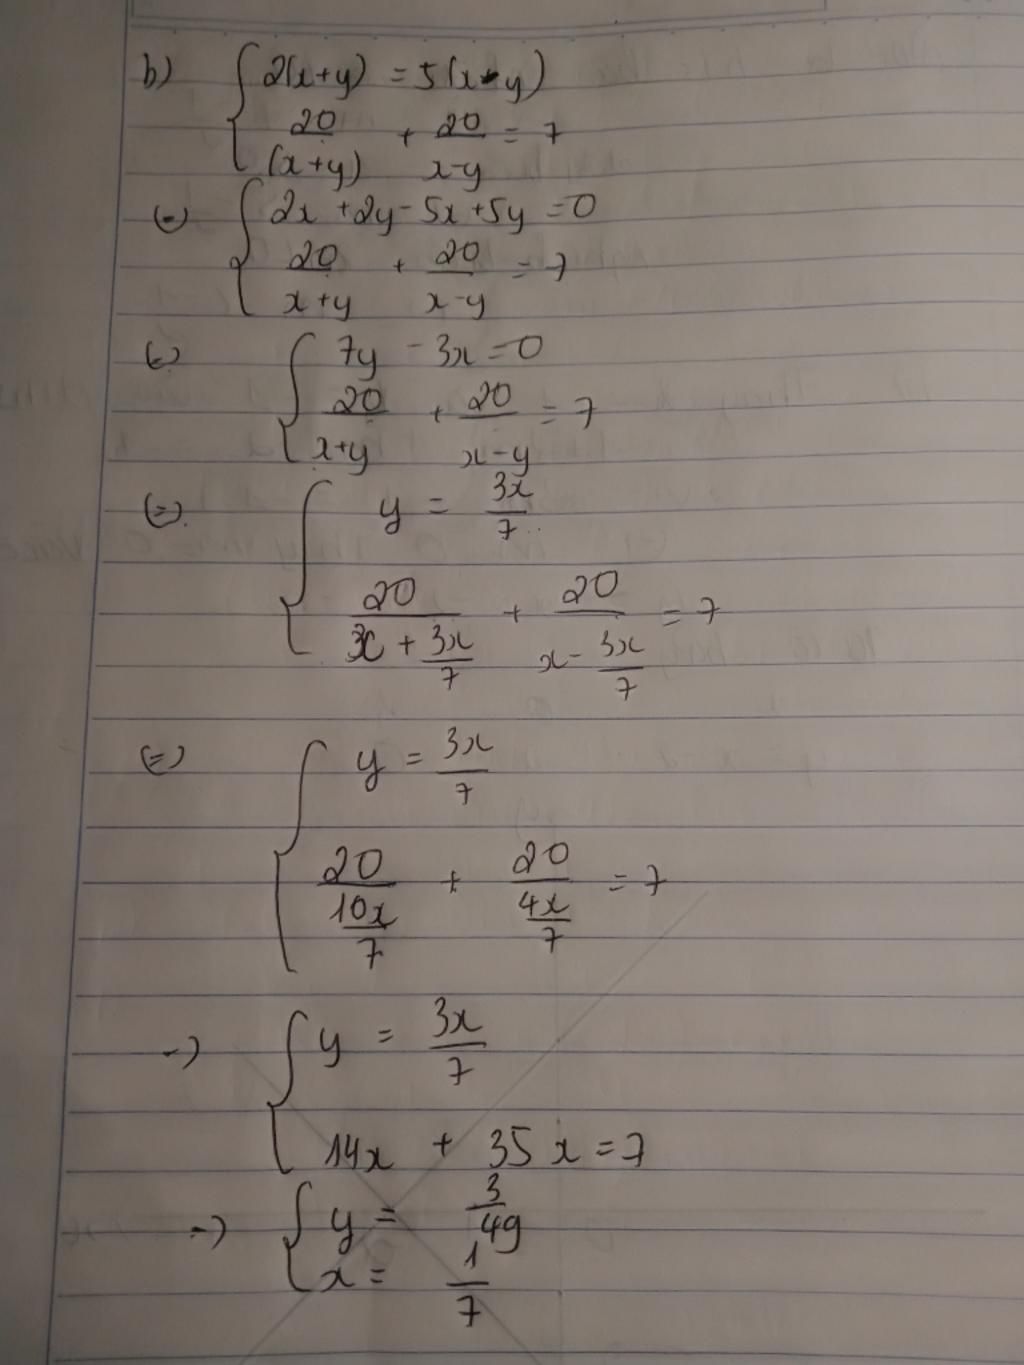 b) { 2(x+y) = 5(x-y)
20/(x+y) + 20/x-y = 7
(=) { 2x +2y - 5x +5y = 0
20/x+y + 20/x-y = 7
(=) { 7y - 3x = 0
20/x+y + 20/x-y = 7
(=) { y = 3x/7
20/(x + 3x/7) + 20/(x - 3x/7) = 7
(=) { y = 3x/7
20/(10x/7) + 20/(4x/7) = 7
-) { y = 3x/7
14x + 35x = 7
-) { y = 3/49
x = 1/7